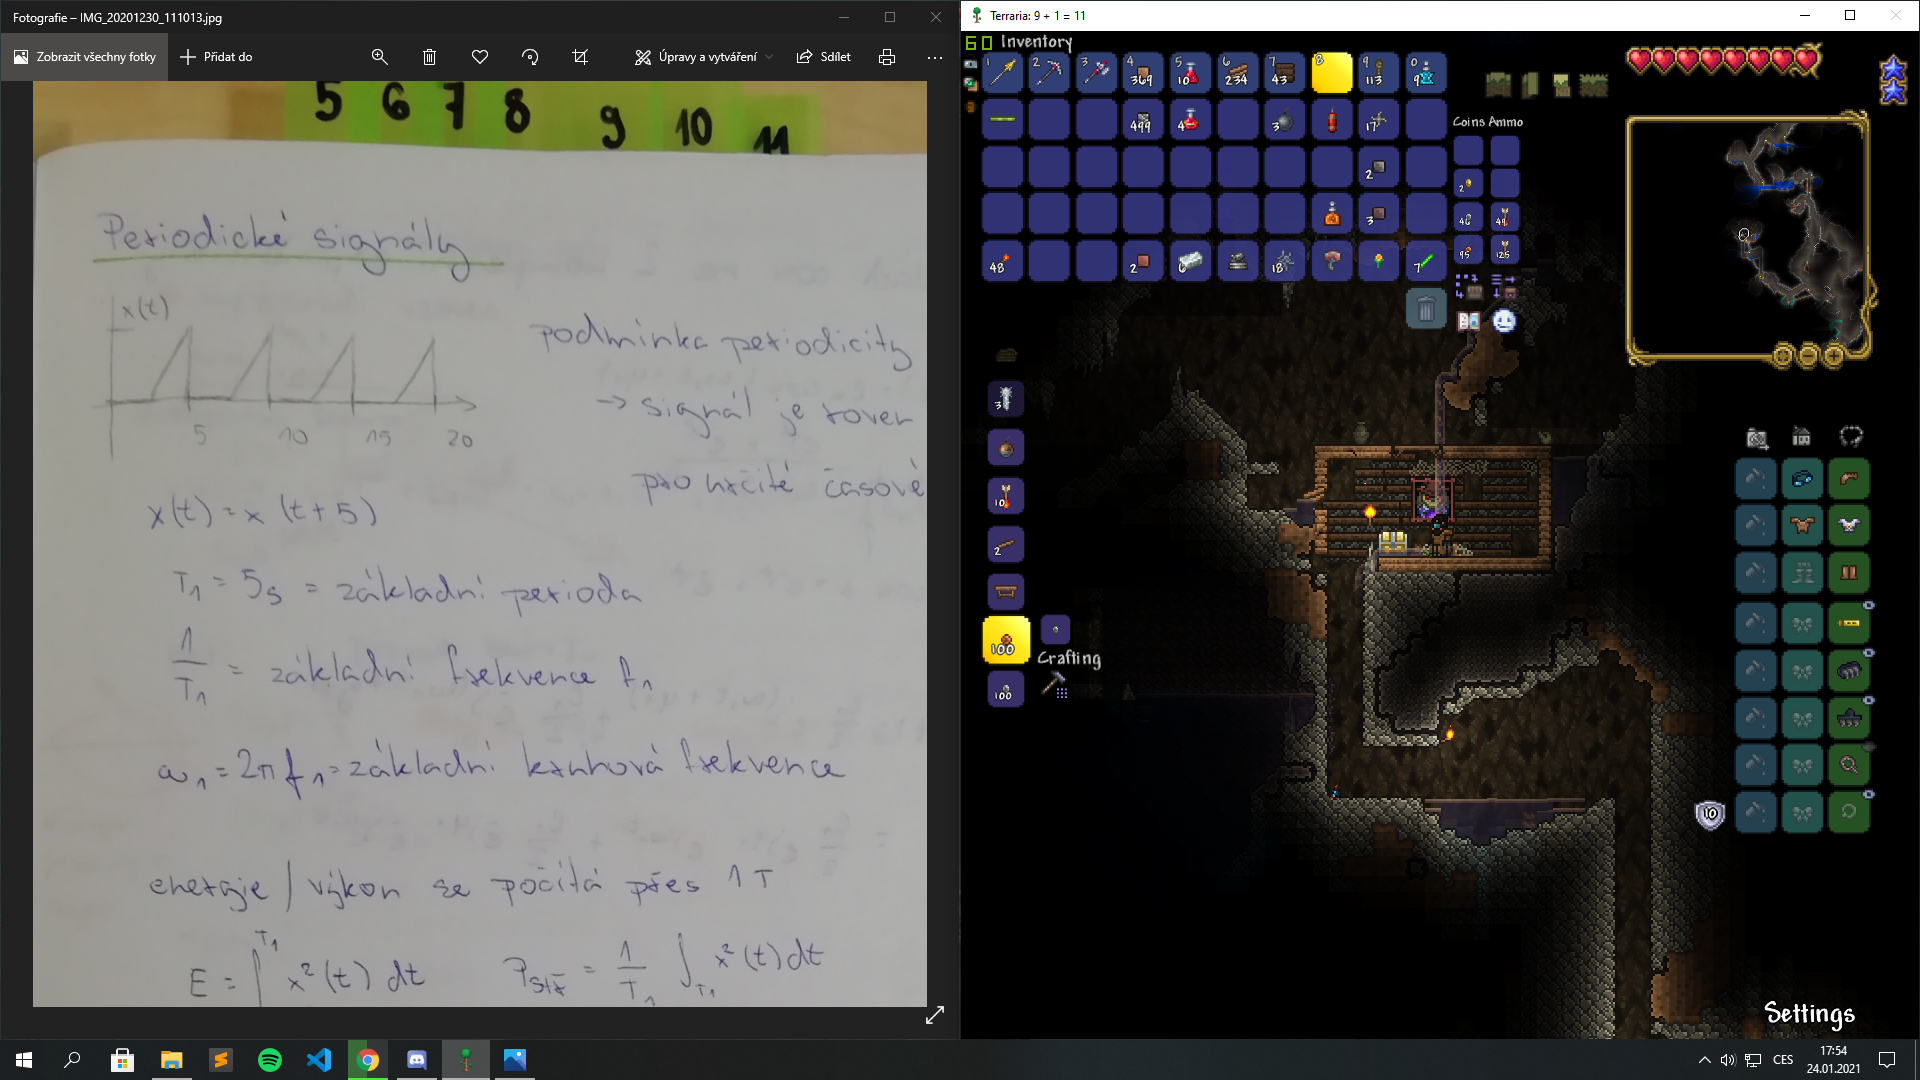 Fotografie – IMG_20201230_111013.jpg
Zobrazit všechny fotky
Přidat do
Úpravy a vytváření
Sdílet
5 6 7 8 9 10 11
Periodické signály
x(t)
5 10 15 20
podmínka periodicity
→ signál je roven
pro určité časové
x(t) = x (t+5)
T1 = 5s = základní perioda
1/T1 = základní frekvence f1
ω1 = 2π f1 = základní kruhová frekvence
energie / výkon se počítá přes 1 T
E = ∫ T1 x²(t) dt
Pstř = 1/T1 ∫T1 x²(t) dt
Terraria: 9 + 1 = 11
60 Inventory
1 2 3 4 5 6 7 8 9 0
369 10 234 43 113 9
499 4 3 17
Coins Ammo
2
2
3
48 2 6 18 7
46 49
95 125
3
10
2
100
Crafting
100
10
Settings
CES
17:54
24.01.2021